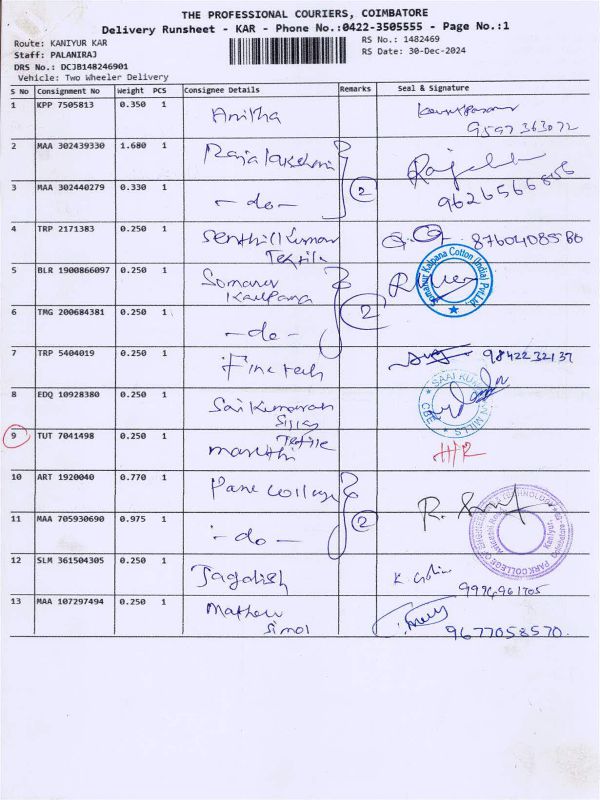 THE PROFESSIONAL COURIERS, COIMBATORE
Delivery Runsheet - KAR - Phone No.:0422-3505555 - Page No.:1
Route: KANIYUR KAR
RS No.: 1482469
Staff: PALANIRAJ
RS Date: 30-Dec-2024
DRS No.: DCJB148246901
Vehicle: Two Wheeler Delivery
S No Consignment No Weight PCS Consignee Details Remarks Seal & Signature
1 KPP 7505813 0.350 1 Anitha
9597363072
2 MAA 302439330 1.680 1 Rajalakshmi
3 MAA 302440279 0.330 1 - do - 2
4 TRP 2171383 0.250 1 Senthil Kumar
Textile
5 BLR 1900866097 0.250 1 Somanur
Kalpana
Somanur Kalpana Cotton (India) Pvt.Ltd.
6 TMG 200684381 0.250 1 - do - 2
7 TRP 5404019 0.250 1 Fine tech 9842232137
8 EDQ 10928380 0.250 1 Sai Kumaran
MILLS CBE
9 TUT 7041498 0.250 1 Maruthi H/R
10 ART 1920040 0.770 1 Park college
11 MAA 705930690 0.975 1 - do - 2
PARK COLLEGE OF ENGINEERING & TECHNOLOGY
Kaniyur, Coimbatore
12 SLM 361504305 0.250 1 Jagadish
13 MAA 107297494 0.250 1 Mathew
Simol
9677058570